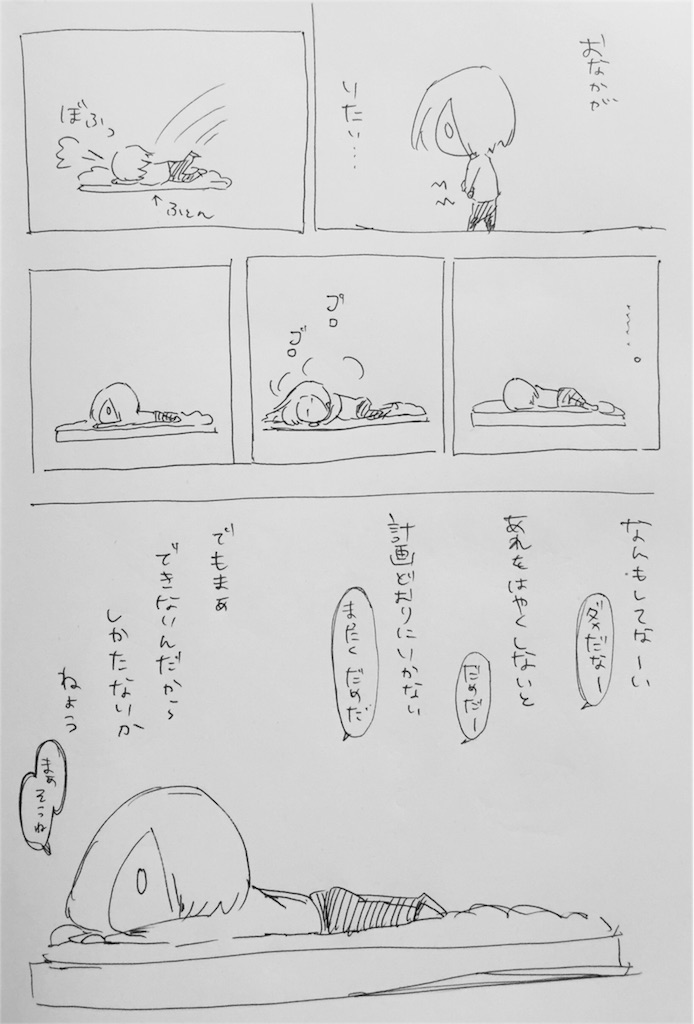 おなかが
りたい…
ぼふっ
↑ふとん
……。
ゴロ
ゴロ
なんもしてなーい
ダメだなー
あれをはやくしないと
だめだー
計画どおりにいかない
まったくだめだ
でもまぁ
できないんだから
しかたないか
ねよう
まぁそうね